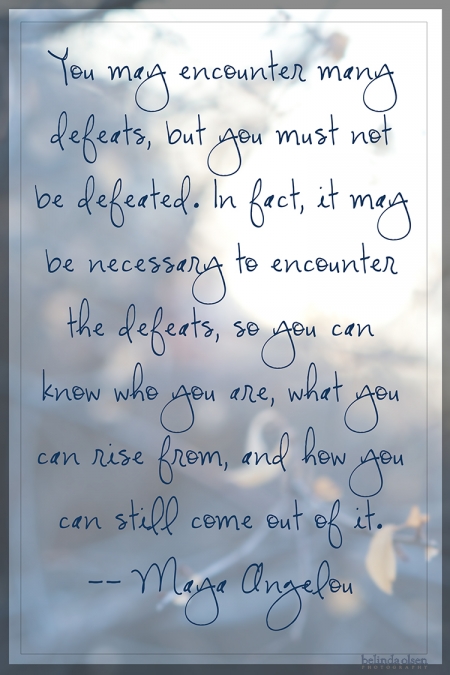 You may encounter many
defeats, but you must not
be defeated. In fact, it may
be necessary to encounter
the defeats, so you can
know who you are, what you
can rise from, and how you
can still come out of it.
-- Maya Angelou
belinda olsen
PHOTOGRAPHY